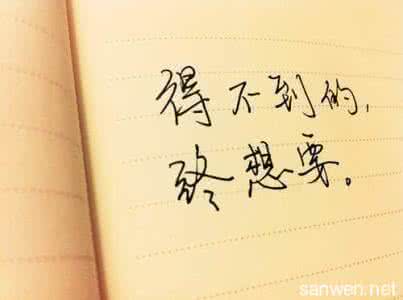 得不到的，
终想要。
sanwen.net